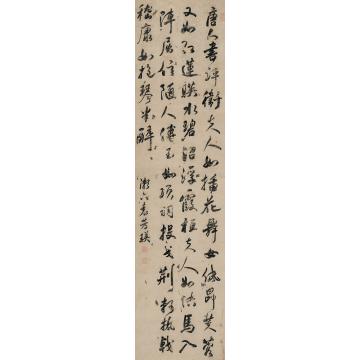 唐人書評衛夫人如插花舞女低昂芙蓉
又如紅蓮暎水碧沼浮霞桓夫人如快馬入
陣屈伸隨人傅玉如項詞援戈荊軻執戟
嵇康如抱琴半醉
芳瑛